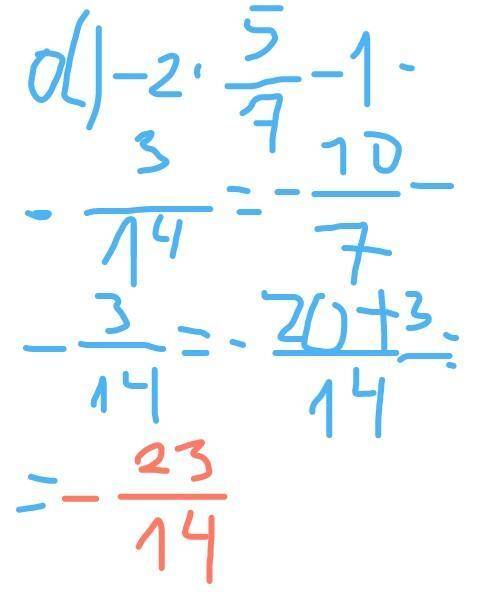 d) -2 · 5/7 - 1 ·
- 3/14 = - 10/7 -
- 3/14 = - 20+3/14 =
= - 23/14